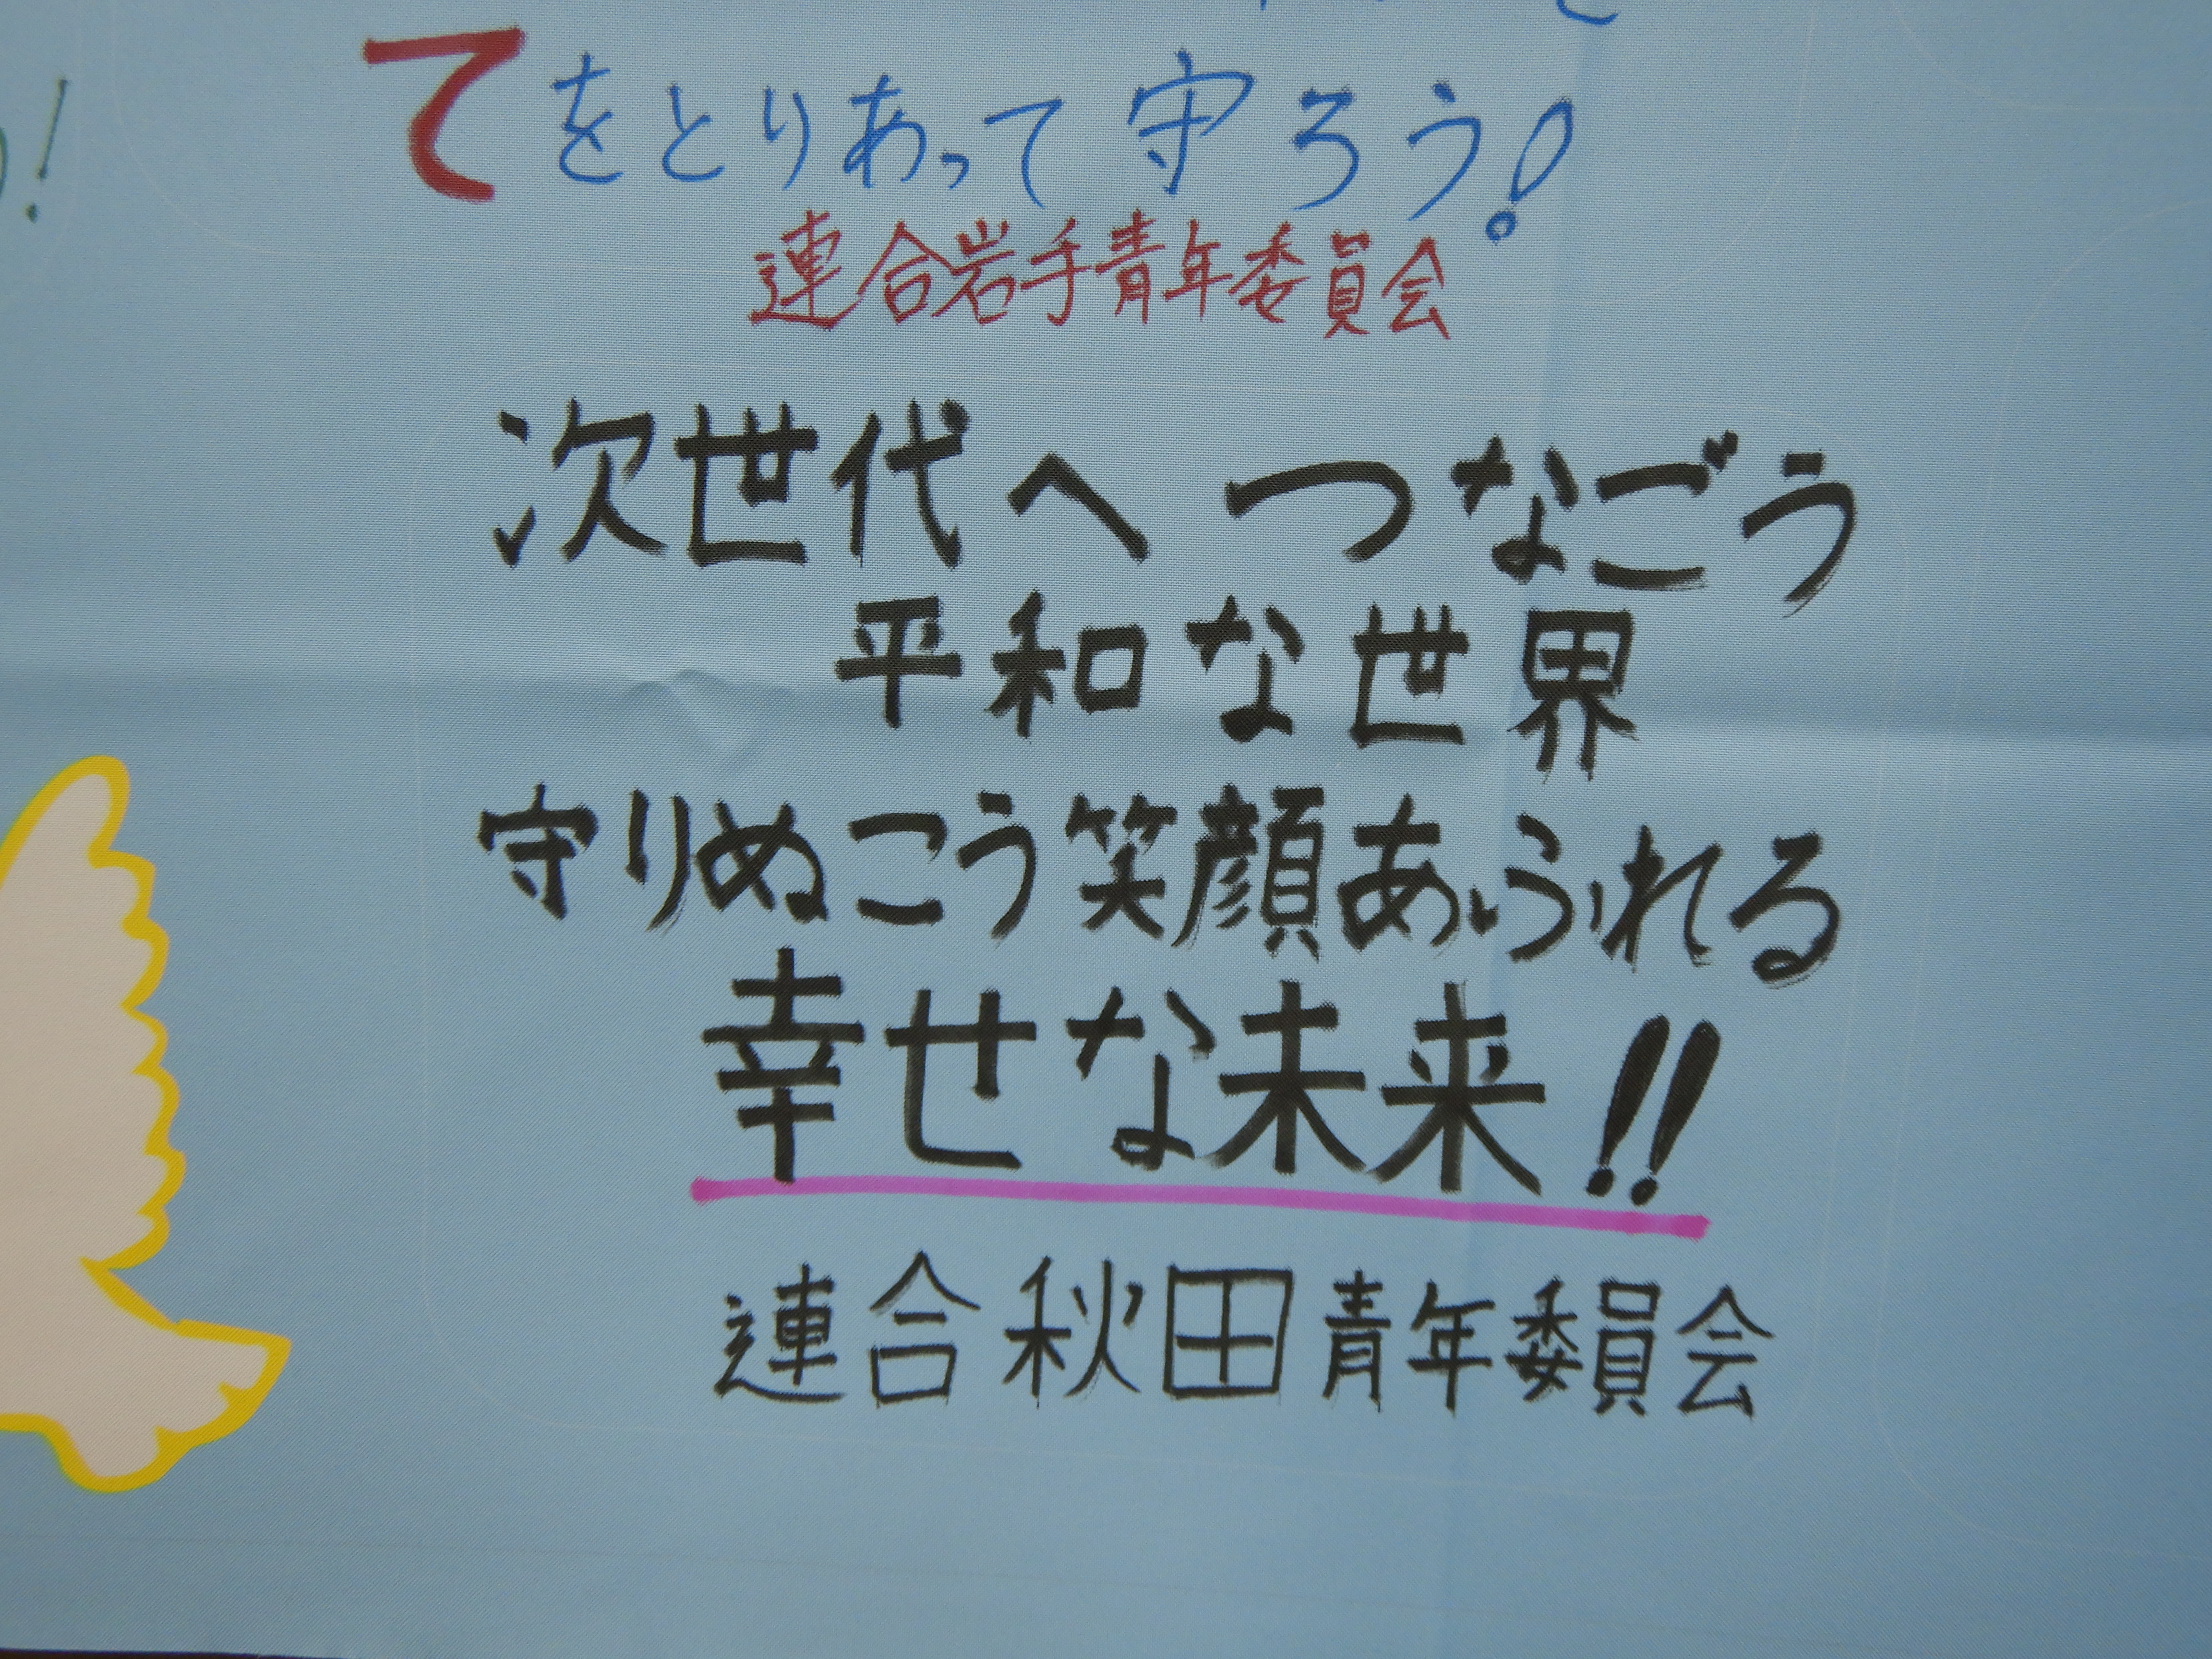 てをとりあって守ろう!
連合岩手青年委員会
次世代へ つなごう
平和な世界
守りぬこう笑顔あふれる
幸せな未来!!
連合秋田青年委員会